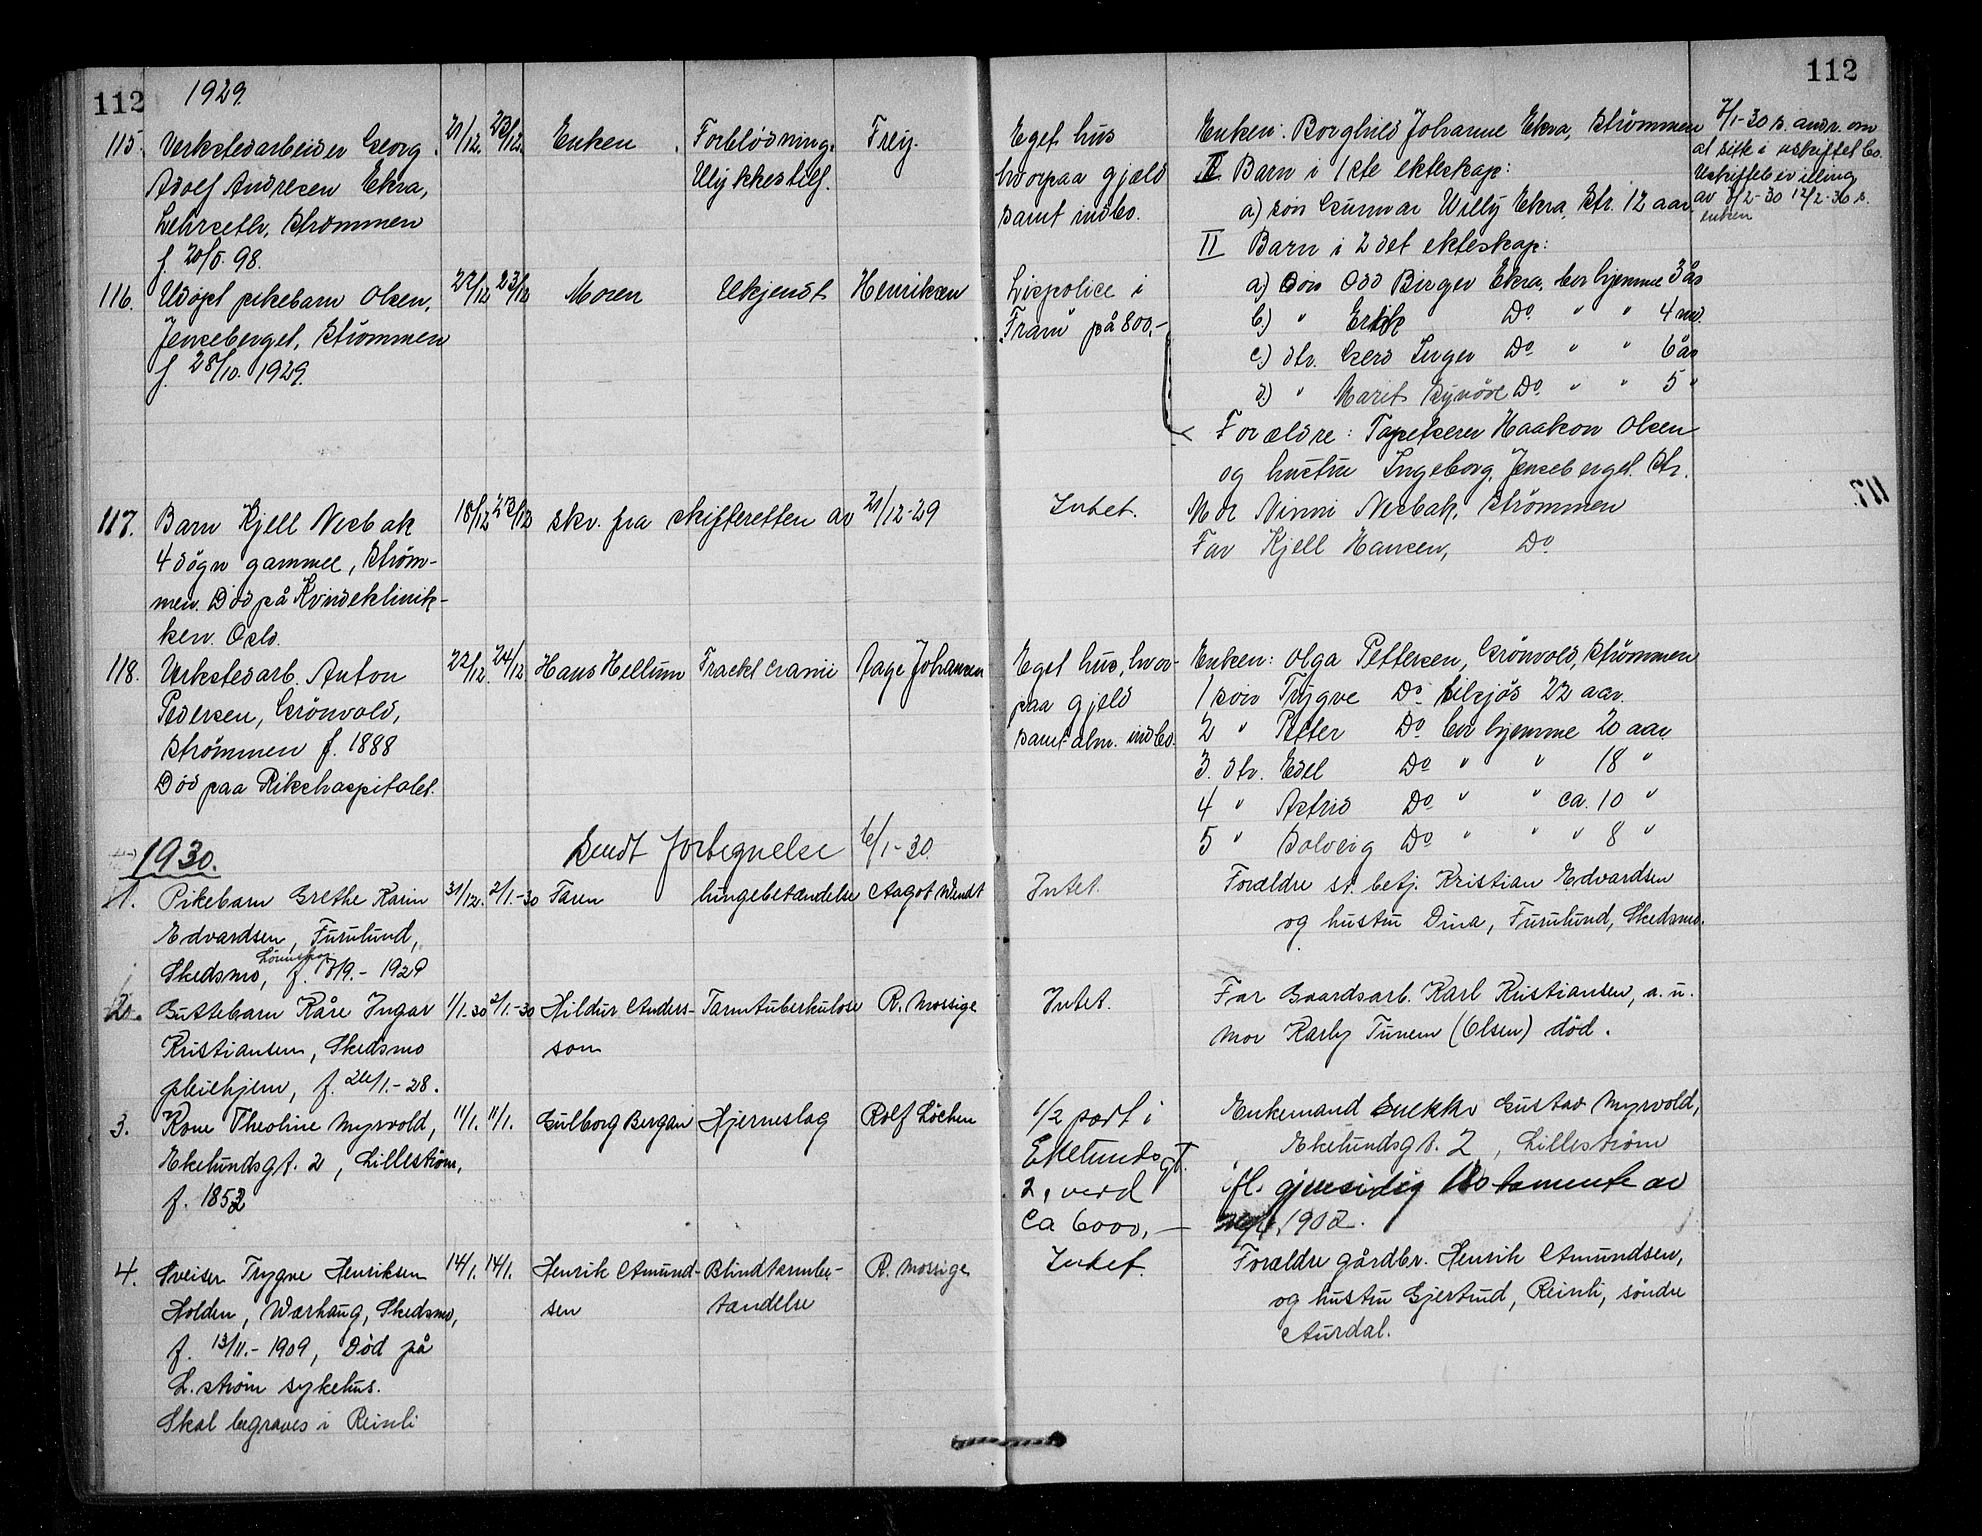 112
1929.
112
115. Verkstedarbeider Georg 21/12. 23/12. Enken Forblödning. Frey.
Adolf Andresen Ekra, Ulykkestilf.
Strømmen
f. 20/5 98.
Eget hus
hvorpaa gjæld
samt indbo.
Enken: Borghild Johanne Ekra, Strømmen
I Barn i 1ste ekteskap:
a) sön Gunnar Willy Ekra, Str. 12 aar
II Barn i 2det ekteskap:
a) Sön Odd Birger Ekra, bor hjemme 3 år
b.) " Erik Do " " 4 md.
c.) dtr. Gerd Inger Do " " 6 år
d.) " Marit Synöve Do " " 5 "
7/1-30 s. andr. om
at sitte i uskiftet bo.
Uskiftebevilling
av 7/2-30 12/2-30 s.
enken
116. Udöpt pikebarn Olsen, 22/12 23/12 Moren Ukjendt Henriksen
Jenseberget, Strømmen
f. 28/10. 1929.
Livpolice i
"Fram" på 800,-
Forældre: Tapetserer Haakon Olsen
og hustru Ingeborg, Jenseberget. Str.
117.
117. Barn Kjell Nesbak 18/12 23/12 skr. fra skifteretten av 21/12-29
4 dögn gammel, Strøm-
men. Död på Kvindeklinik-
ken. Oslo.
Intet.
Mor Ninni Nesbak, Strømmen
Far Kjell Hansen, Do
118. Verkstedarb. Anton 22/12. 24/12 Hans Hellum Fractst cranii Aage Johansen
Pedersen, Grönvold,
Strømmen f. 1888
Död paa Rikshospitalet.
Eget hus, hvor-
paa gjeld
samt alm. indbo.
Enken: Olga Pettersen, Grönvold, Strømmen
1 sön Trygve Do tilsjös 22 aar.
2 " Petter Do bor hjemme 20 aar
3. dtr. Edel Do " " 18 "
4 " Astrid Do " " ca. 10 "
5 " Solveig Do " " " 8 "
Sendt fortegnelse 6/1-30.
1930.
1. Pikebarn Grethe Karin 31/12. 2/1.-30 Faren lungebetændelse Aagot Wendt
Edvardsen, Furulund,
Skedsmo, f. 18/9.- 1929
Intet.
Forældre st. betj. Kristian Edvardsen
og hustru Dina, Furulund, Skedsmo.
2. Guttebarn Kåre Ingar 1/1-30 2/1.-30 Hildur Anders- Tarmtuberkulose R. Mossige
Kristiansen, Skedsmo son
pleiehjem, f. 26/1.-28.
Intet.
Far Gaardsarb. Karl Kristiansen, a. u.
mor Karly Tunem (Olsen) död.
3. Kone Theoline Myrvold, 11/1. 11/1. Gulborg Bergan Hjerneslag Rolf Löchen
Ekelundsgt. 2, Lilleström,
f. 1853
1/2 part i
Ekelundsgt.
2, verd
Ca 6000,-
Enkemand Snekker Gustav Myrvold,
Ekelundsgt. 2, Lilleström
ifl. gjensidig testamente av
1902.
4. Sveiser Trygve Henriksen 14/1. 14/1. Henrik Amund- Blindtarmbe- R. Mossige
Holden, Warhaug, Skedsmo, sen tændelse
f. 13/11.- 1909, Död på
L.ström sykehus.
Skal begraves i Reinli
Intet.
Forældre gårdbr. Henrik Amundsen,
og hustru Gjertrud, Reinli, söndre
Aurdal.